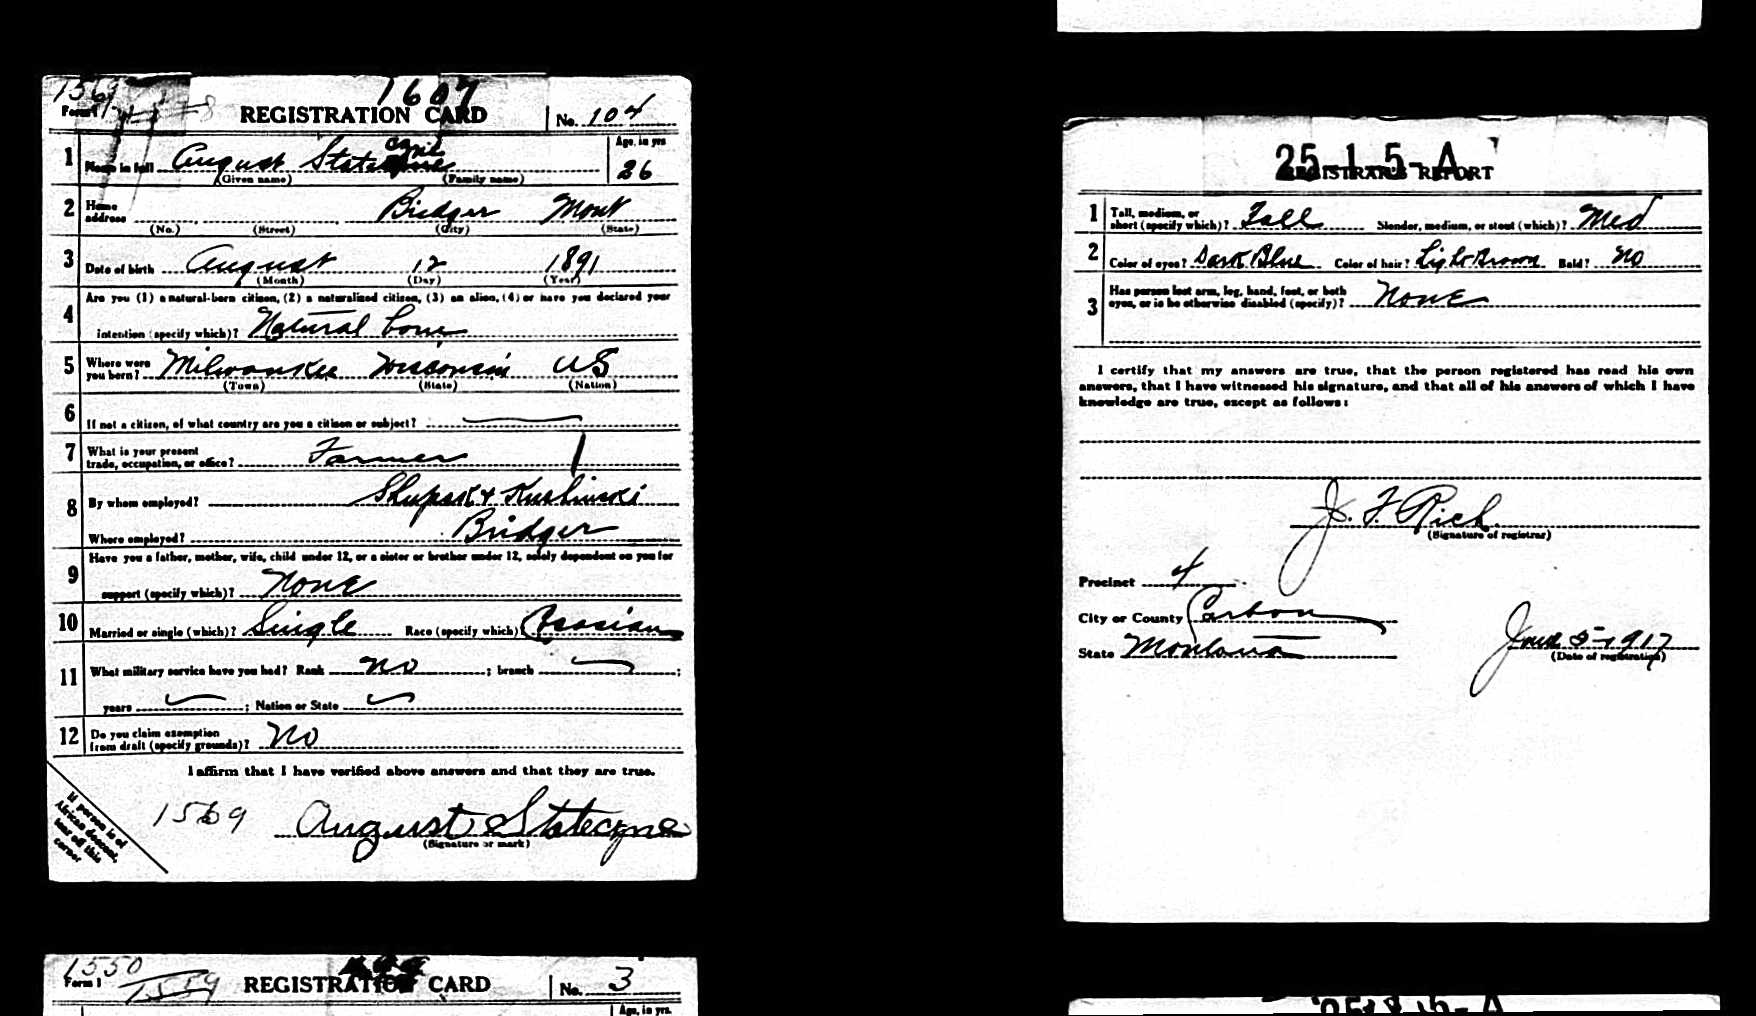 1569
1607
Form 1
REGISTRATION CARD No. 104
1 Name in full August State cyne Age, in yrs 26
(Given name) (Family name)
2 Home address Bridger Mont
(No.) (Street) (City) (State)
3 Date of birth August 12 1891
(Month) (Day) (Year)
4 Are you (1) a natural-born citizen, (2) a naturalized citizen, (3) an alien, (4) or have you declared your
intention (specify which)? Natural born
5 Where were you born? Milwaukee Wisconsin US
(Town) (State) (Nation)
6 If not a citizen, of what country are you a citizen or subject?
7 What is your present
trade, occupation, or office? Farmer
8 By whom employed? &
Where employed? Bridger
9 Have you a father, mother, wife, child under 12, or a sister or brother under 12, solely dependent on you for
support (specify which)? None
10 Married or single (which)? Single Race (specify which)? Cocasian
11 What military service have you had? Rank no ; branch ;
years ; Nation or State
12 Do you claim exemption
from draft (specify grounds)? No
I affirm that I have verified above answers and that they are true.
1569 August Statecyne
(Signature or mark)
If person is of
African descent,
tear off this
corner
1550
1559
Form 1
REGISTRATION CARD No. 3
Age, in yrs.
25-1-5-A
REGISTRAR'S REPORT
1 Tall, medium, or
short (specify which)? Tall Slender, medium, or stout (which)? Med
2 Color of eyes? Dark Blue Color of hair? Light Brown Bald? No
3 Has person lost arm, leg, hand, foot, or both
eyes, or is he otherwise disabled (specify)? None
I certify that my answers are true, that the person registered has read his own
answers, that I have witnessed his signature, and that all of his answers of which I have
knowledge are true, except as follows:
J. F. Rich
(Signature of registrar)
Precinct 4
City or County Carbon
State Montana June 5-1917
(Date of registration)